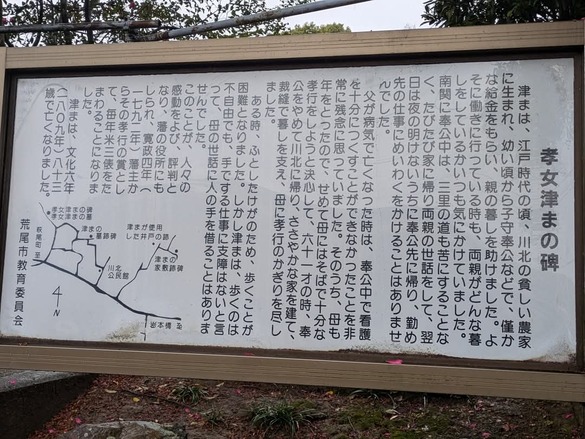 孝女津まの碑
津まは、江戸時代の頃、川北の貧しい農家
に生まれ、幼い頃から子守奉公などで、僅か
な給金をもらい、親の暮しを助けました。よ
そに働きに行っている時も、両親がどんな暮
しをしているかいつも気にかけていました。
南関に奉公中は、三里の道も苦にすることな
く、たびたび家に帰り両親の世話をして、翌
日は夜の明けないうちに奉公先に帰り、勤め
先の仕事にめいわくをかけることはありませ
んでした。
父が病気で亡くなった時は、奉公中で看護
を十分につくすことができなかったことを非
常に残念に思っていました。そのうち、母も
年をとったので、せめて母にはそばで十分な
孝行をしようと決心して、六十一才の時、奉
公をやめて川北に帰り、ささやかな家を建て、
裁縫で暮しを支え、母に孝行のかぎりを尽し
ました。
ある時、ふとしたけがのため、歩くことが
困難となりました。しかし津まは、歩くのは
不自由でも、手でする仕事に支障はないと言
って、母の世話に人の手を借ることはありま
せんでした。
このことが、人々の
感動をよび、評判と
なり、藩の役所にも
しられ、寛政四年(
一七九二年)藩主か
らその孝行の賞とし
て、毎年米二俵をた
まわることになりま
した。
津まは、文化六年
(一八〇九年)八十三
歳で亡くなりました。
孝女津まの碑
孝女津まの墓
津まの
墓跡碑
津まが使用
した井戸の跡
津まの
家敷跡碑
川北
公民館
萩尾町
至
岩本橋
至
荒尾市教育委員会